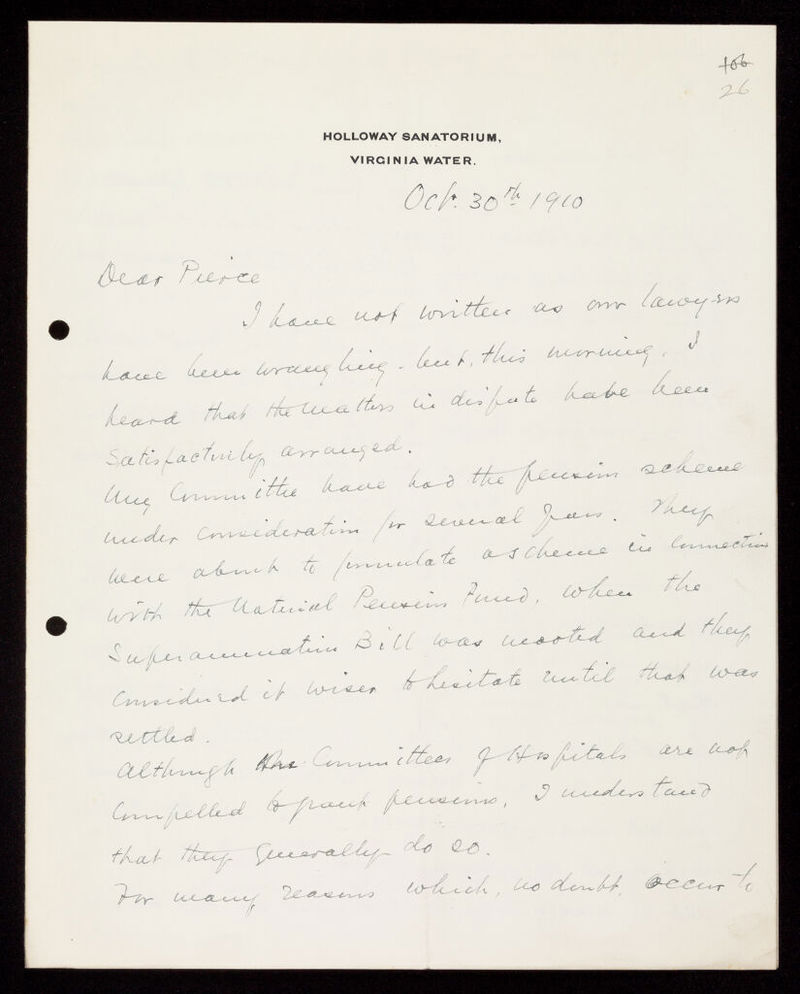 106
26
HOLLOWAY SANATORIUM,
VIRGINIA WATER.
Oct. 30th 1910
Dear Pierce
I have not written as our lawyers
have been wrangling - but, this morning, I
heard that the matters in dispute have been
satisfactorily arranged.
My Committee have had the pension scheme
under consideration for several years. They
were about to formulate a scheme in connection
with the National Pension Fund, when the
Superannuation Bill was mooted and they
considered it wiser to hesitate until that was
settled.
Although the Committees of Hospitals are not
compelled to grant pensions, I understand
that they generally do so.
For many reasons which, no doubt, occur to